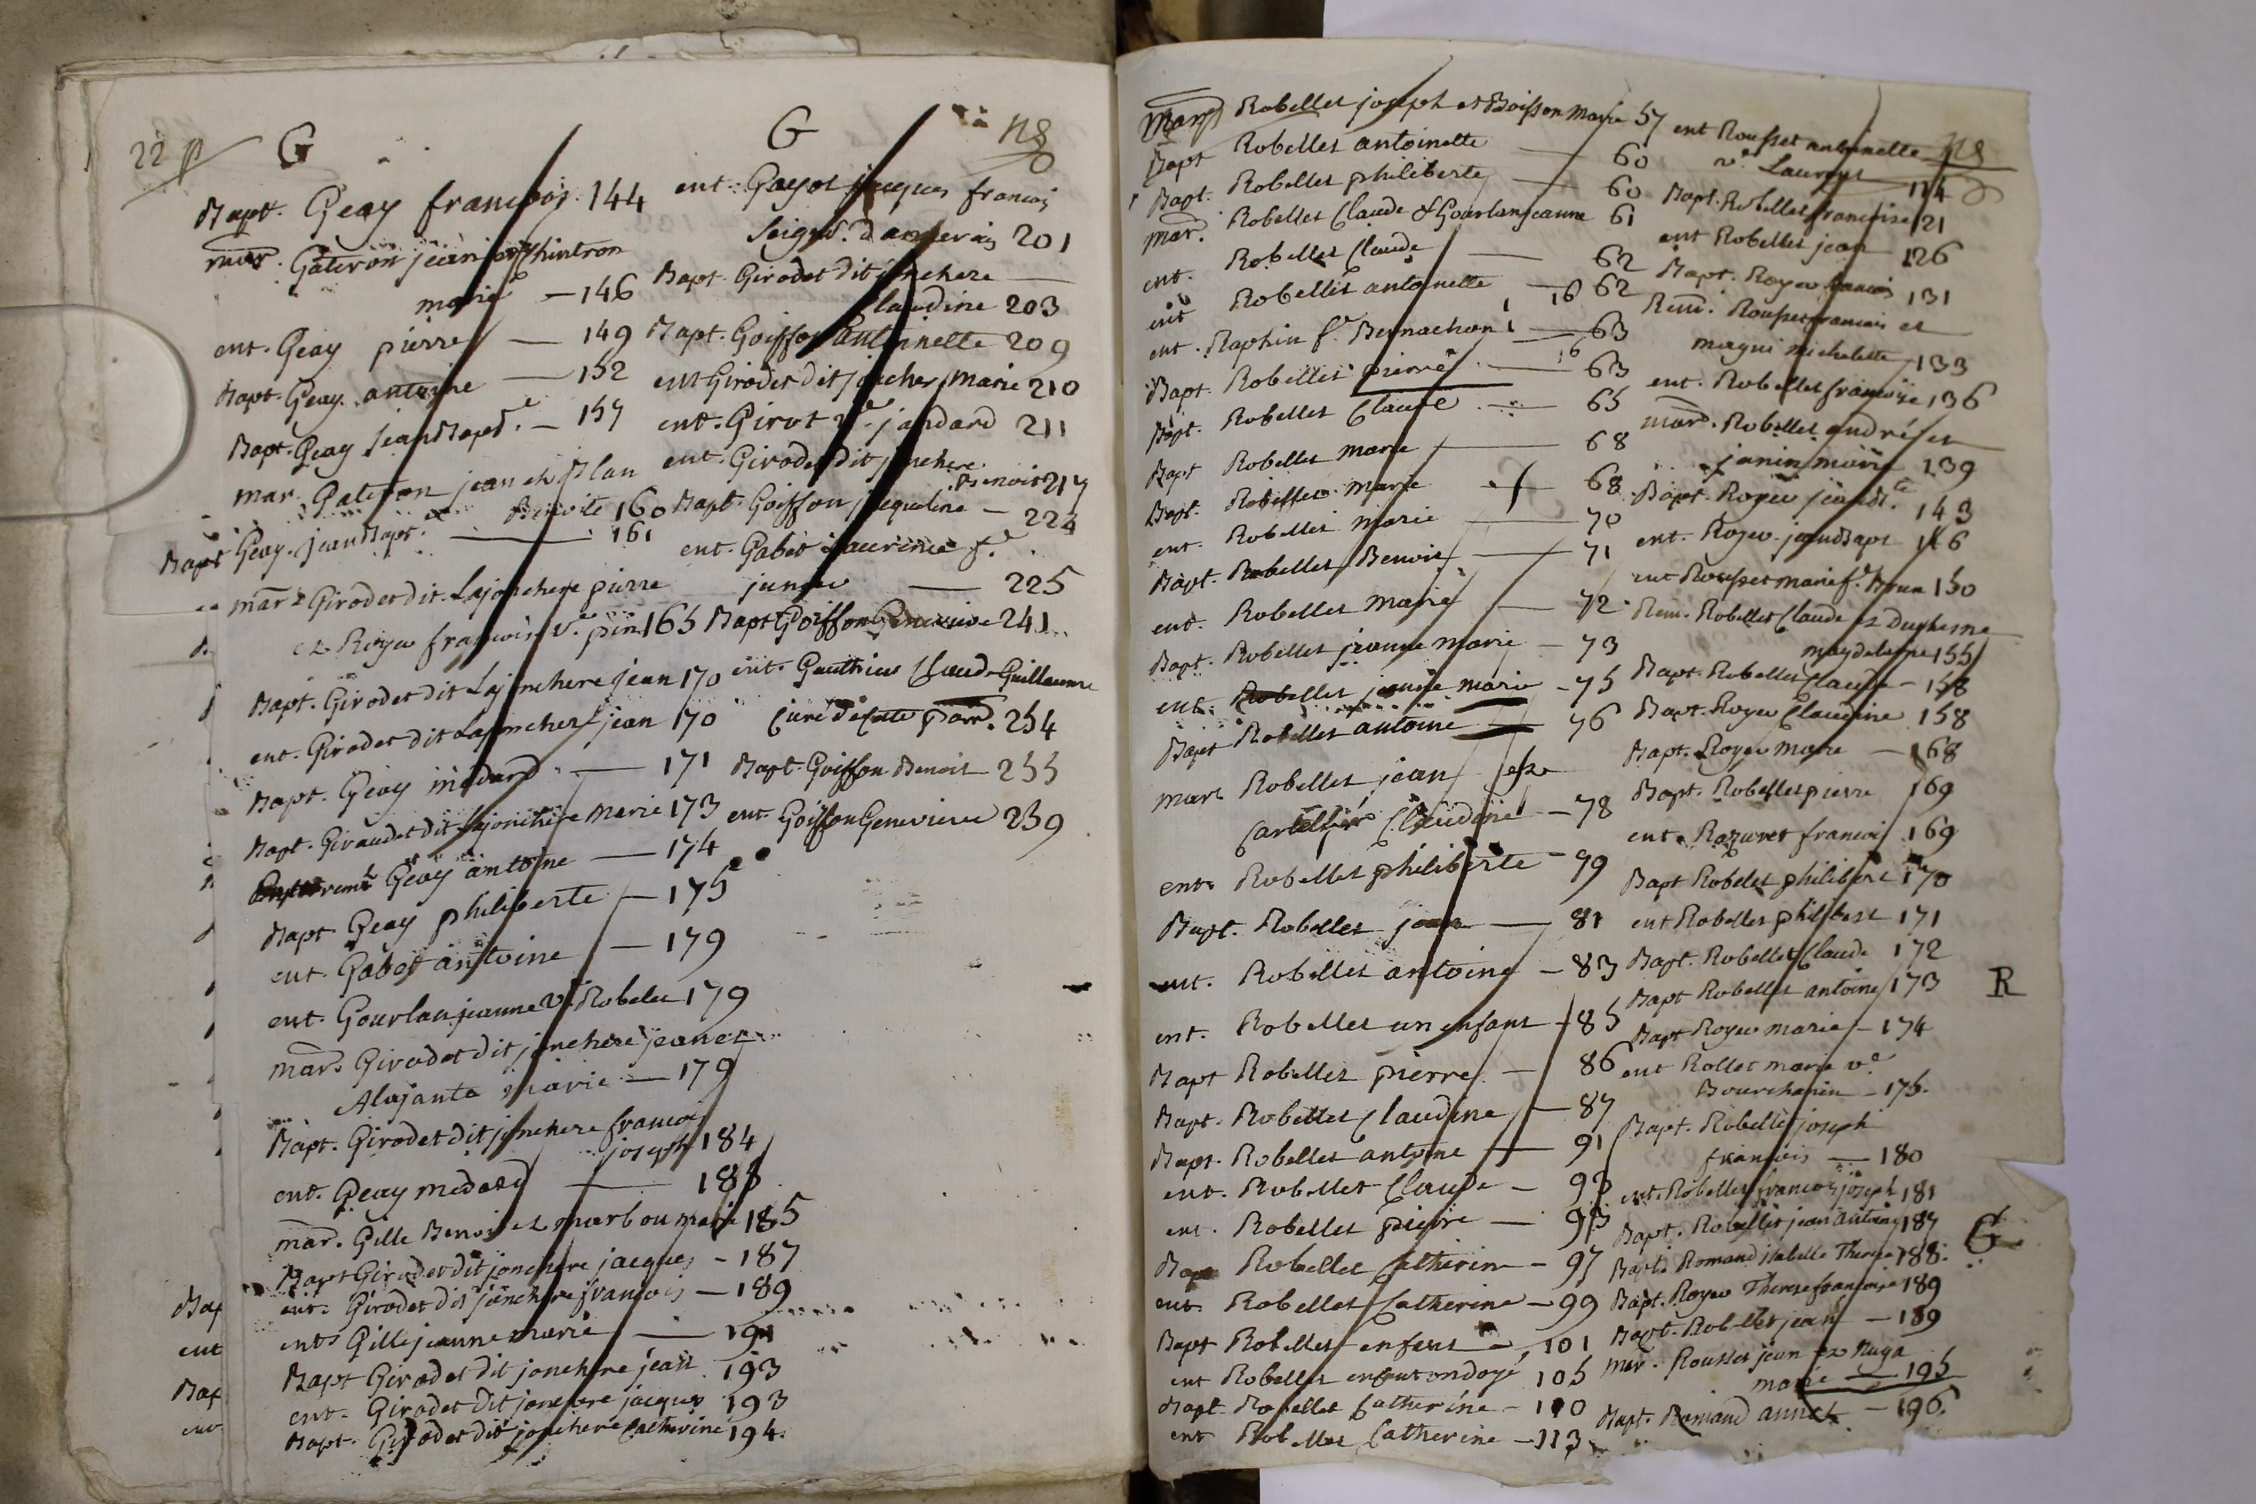 22
G
Bapt. Geay francois. 144
mar. Gateron jean et phintron
marie — 146
ent. Geay pierre — 149
Bapt. Geay antoine — 152
Bapt. Geay jean Bapt.e — 157
mar. Gateron jean et Blan
Benoite 160
Bapt Geay. jean Bapt.e — 161
mar Girodet dit Lajonchere pierre
et Royer francoise v.e pin 165
Bapt. Girodet dit Lajonchere jean 170
ent. Girodet dit Lajonchere jean 170
Bapt. Geay medard — 171
Bapt. Giraudet dit Lajonchere Marie 173
Geay antoine — 174
Bapt Geay philiberte — 175
ent. Gabet antoine — 179
ent. Gourlan jeanne v.e Robelet 179
mar. Girodet dit jonchere jean et
Alajanta marie — 179
Bapt. Girodet dit jonchere francois
joseph 184
ent. Geay medard — 185
mar. Gille Benoit et marbou marie 185
Bapt Girodet dit jonchere jacques — 187
ent. Girodet dit jonchere francois — 189
ent Gille jeanne marie — 191
Bapt Girodet dit jonchere jean 193
ent. Girodet dit jonchere jacques 193
Bapt. Girodet dit jonchere Catherine 194.
Bap
ent
Bap
ent
G
ent. Gayot jacques francois
seign.r 201
Bapt. Girodet dit jonchere —
Claudine 203
Bapt. Goiffon antoinette 209
ent Girodet dit jonchere, Marie 210
ent. Girot v.e jandard 211
ent. Girodet dit jonchere
Benoit 217
Bapt. Goiffon jacqueline — 224
ent. Gabet Laurence f.e
junier — 225
Bapt Goiffon Genevieve 241
ent. Gauthier Claude Guillaume
Curé de cette parr. 254
Bapt. Goiffon Benoit 255
ent. Goiffon Genevieve 259
mar Robellet joseph et Boisson Marie 57
Bapt Robellet antoinette — 60
Bapt. Robellet philiberte — 60
mar. Robellet Claude et Gourlan jeanne 61
ent. Robellet Claude — 62
ent Robellet antoinette — 62
ent. Raphin f.e Bernachon — 63
Bapt. Robellet pierre — 63
Bapt. Robellet Claude — 65
Bapt Robellet marie — 68
Bapt. Robellet marie — 68
ent. Robellet marie — 70
Bapt. Robellet Benoit — 71
ent. Robellet Marie — 72
Bapt. Robellet jeanne marie — 73
ent. Robellet jeanne marie — 75
Bapt Robellet antoine — 76
mar Robellet jean et
Claudine — 78
ent. Robellet philiberte — 79
Bapt. Robellet jean — 81
ent. Robellet antoine — 83
ent. Robellet un enfant — 85
Bapt Robellet pierre — 86
Bapt. Robellet Claudine — 87
Bapt. Robellet antoine — 91
ent. Robellet Claude — 93
ent. Robellet pierre — 93
Bapt Robellet Catherine — 97
ent. Robellet Catherine — 99
Bapt Robellet enfant — 101
ent Robellet enfant ondoyé 105
Bapt. Robellet Catherine — 110
ent Robellet Catherine — 113
ent Rousset antoinette
v.e Laurent — 114
Bapt. Robellet francoise 121
ent Robellet jean — 126
Bapt. Royer francois 131
Rem. Rousset francois et
magni michelette 133
ent. Robellet francoise 136
mar. Robellet andré et
janin marie 139
Bapt. Royer jean B.te 143
ent. Royer jean Bapt 146
ent Rousset marie f.e Brun 150
Rem. Robellet Claude et Duchesne
magdeleine 155
Bapt. Robellet Claude — 158
Bapt. Royer Claudine 158
Bapt. Royer marie — 168
Bapt. Robellet pierre 169
ent. Razuret francois 169
Bapt Robelet philibert 170
ent Robellet philibert 171
Bapt. Robellet Claude 172
Bapt Robellet antoine 173
Bapt Royer marie — 174
ent Rollet marie v.e
Bourchanin — 175.
Bapt. Robellet joseph
francois — 180
ent. Robellet francois joseph 181
Bapt. Robellet jean antoine 187
Bapt. Romand isabelle Therese 188
Bapt. Royer Therese francoise 189
Bapt. Robellet jean — 189
mar. Rousset jean et Nuga
marie — 195
Bapt. Romand annet — 196.
R
G